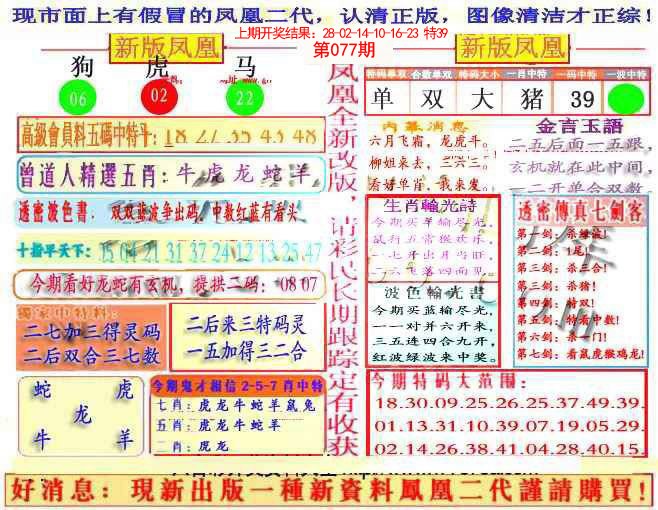 现市面上有假冒的凤凰二代，认清正版，图像清洁才正综！
上期开奖结果：28-02-14-10-16-23 特39
新版凤凰
第077期
新版凤凰
狗 虎 马
06 02 22
高級會員料五碼中特平：18 27 35 43 48
曾道人精選五肖：牛虎龙蛇羊
透密波色書，双双蓝波争出码，中数红蓝有看头
十指平天下：15 04 21 31 37 24 12 13 25 47
今期看好龙蛇有玄机，提拱二码：08 07
獨家中特料：
二七加三得灵码
二后双合三七数
二后来三特码灵
一五加得三二合
蛇 虎
龙
牛 羊
今期鬼才相信2-5-7肖中特
七肖：虎龙牛蛇羊鼠兔
五肖：虎龙牛蛇羊
二肖：虎龙
凤凰全新改版，请彩民长期跟踪定有收获
特码单双 合数单双 特码大小 一肖中特 一码中特 一波中特
单 双 大 猪 39
内幕消息
六月飞霜，龙虎斗。
柳姐来去，二六三。
看好单肖，我来发。
金言玉語
二五后面一五跟，
玄机就在此中间，
一二开单合双数
生肖輸光詩
今期买羊输尽光，
鼠有五常猴欢乐，
一七开出月当旺
二六飞落四面见，
波色輸光書
今期买蓝输尽光，
一一对并六开来，
三五连四合九开，
红波绿波来中奖。
透密傳真七劍客
第一剑：杀绿波！
第二剑：1尾！
第三剑：杀三合！
第三剑：杀猪！
第四剑：特双！
第五剑：特看中数！
第六剑：杀一门！
第七剑：看鼠虎猴鸡龙！
今期特码大范围：
18.30.09.25.26.25.37.49.39.
01.13.31.10.39.07.19.05.29.
02.14.26.38.41.04.28.40.15.
好消息：現新出版一種新資料鳳凰二代謹請購買！